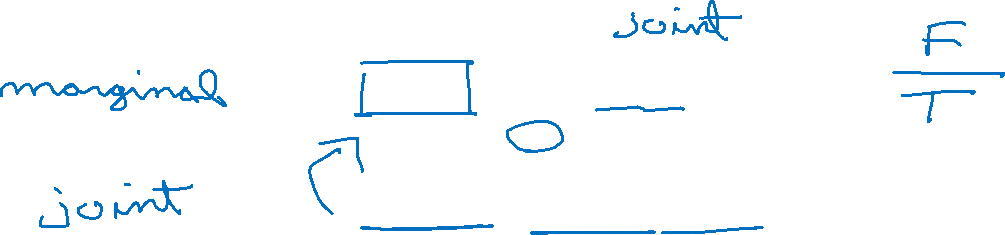 joint
F
marginal
T
joint